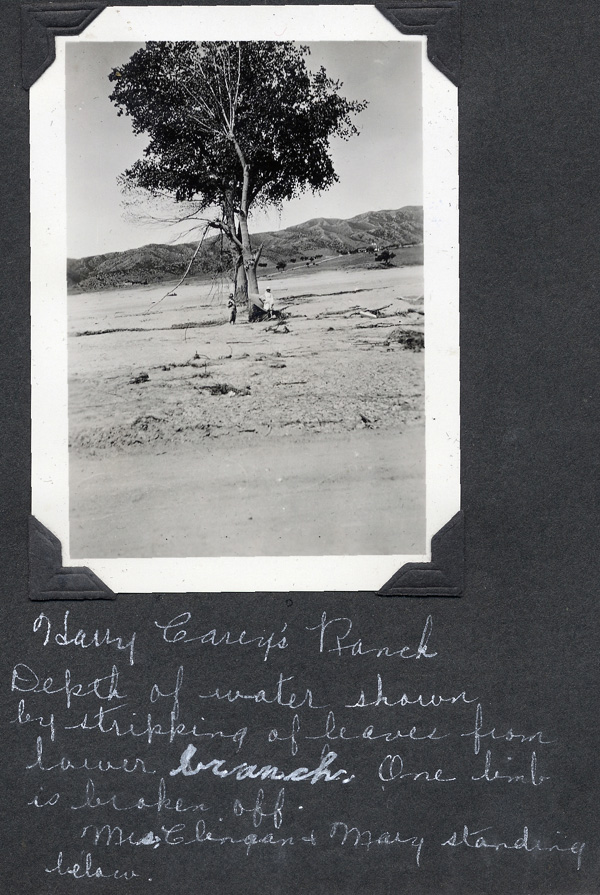 Harry Carey's Ranch
Depth of water shown
by stripping of leaves from
lower branch. One limb
is broken off.
Mrs. Clengan & Mary standing
below.